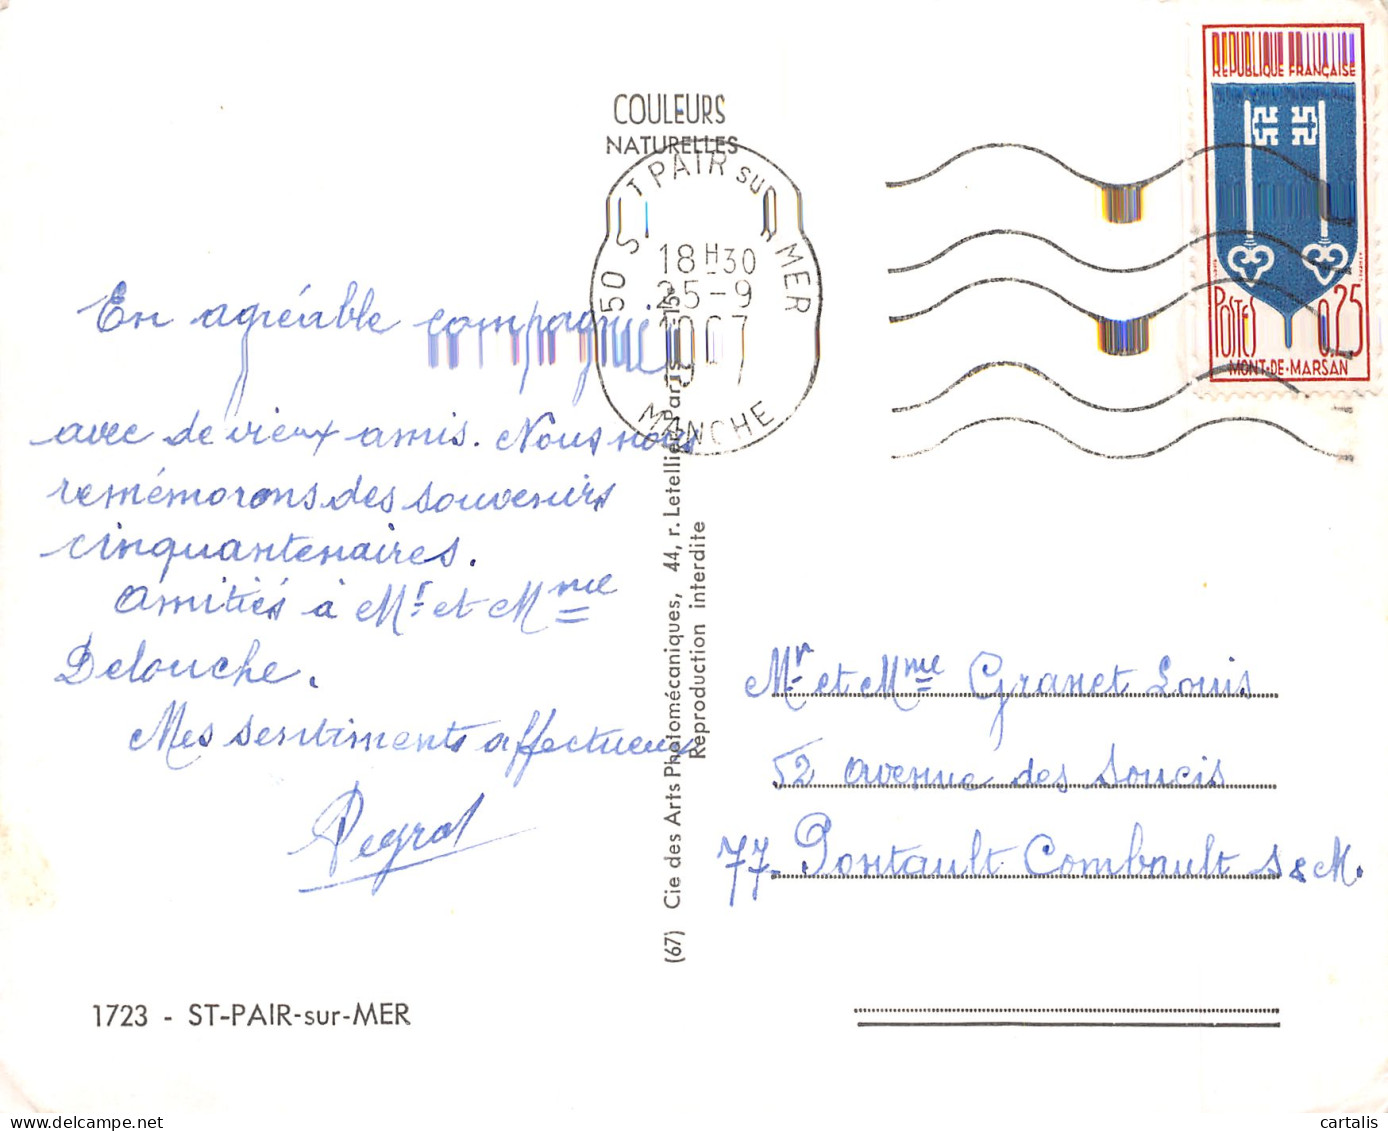 COULEURS
NATURELLES
50 ST PAIR sur MER
18H30
25-9
1967
MANCHE
REPUBLIQUE FRANÇAISE
POSTES 0,25
MONT-DE-MARSAN
En agréable compagnie
avec de vieux amis. Nous nous
remémorons des souvenirs
cinquantenaires.
Amitiés à Mr et Mme
Delouche.
Mes sentiments affectueux
Peyrol
Mr et Mme Granet Louis
52 avenue des Soucis
77- Pontault Combault S & M.
(67) Cie des Arts Photomécaniques, 44, r. Letellier, Paris -15e
Reproduction interdite
1723 - ST-PAIR-sur-MER
cartalis